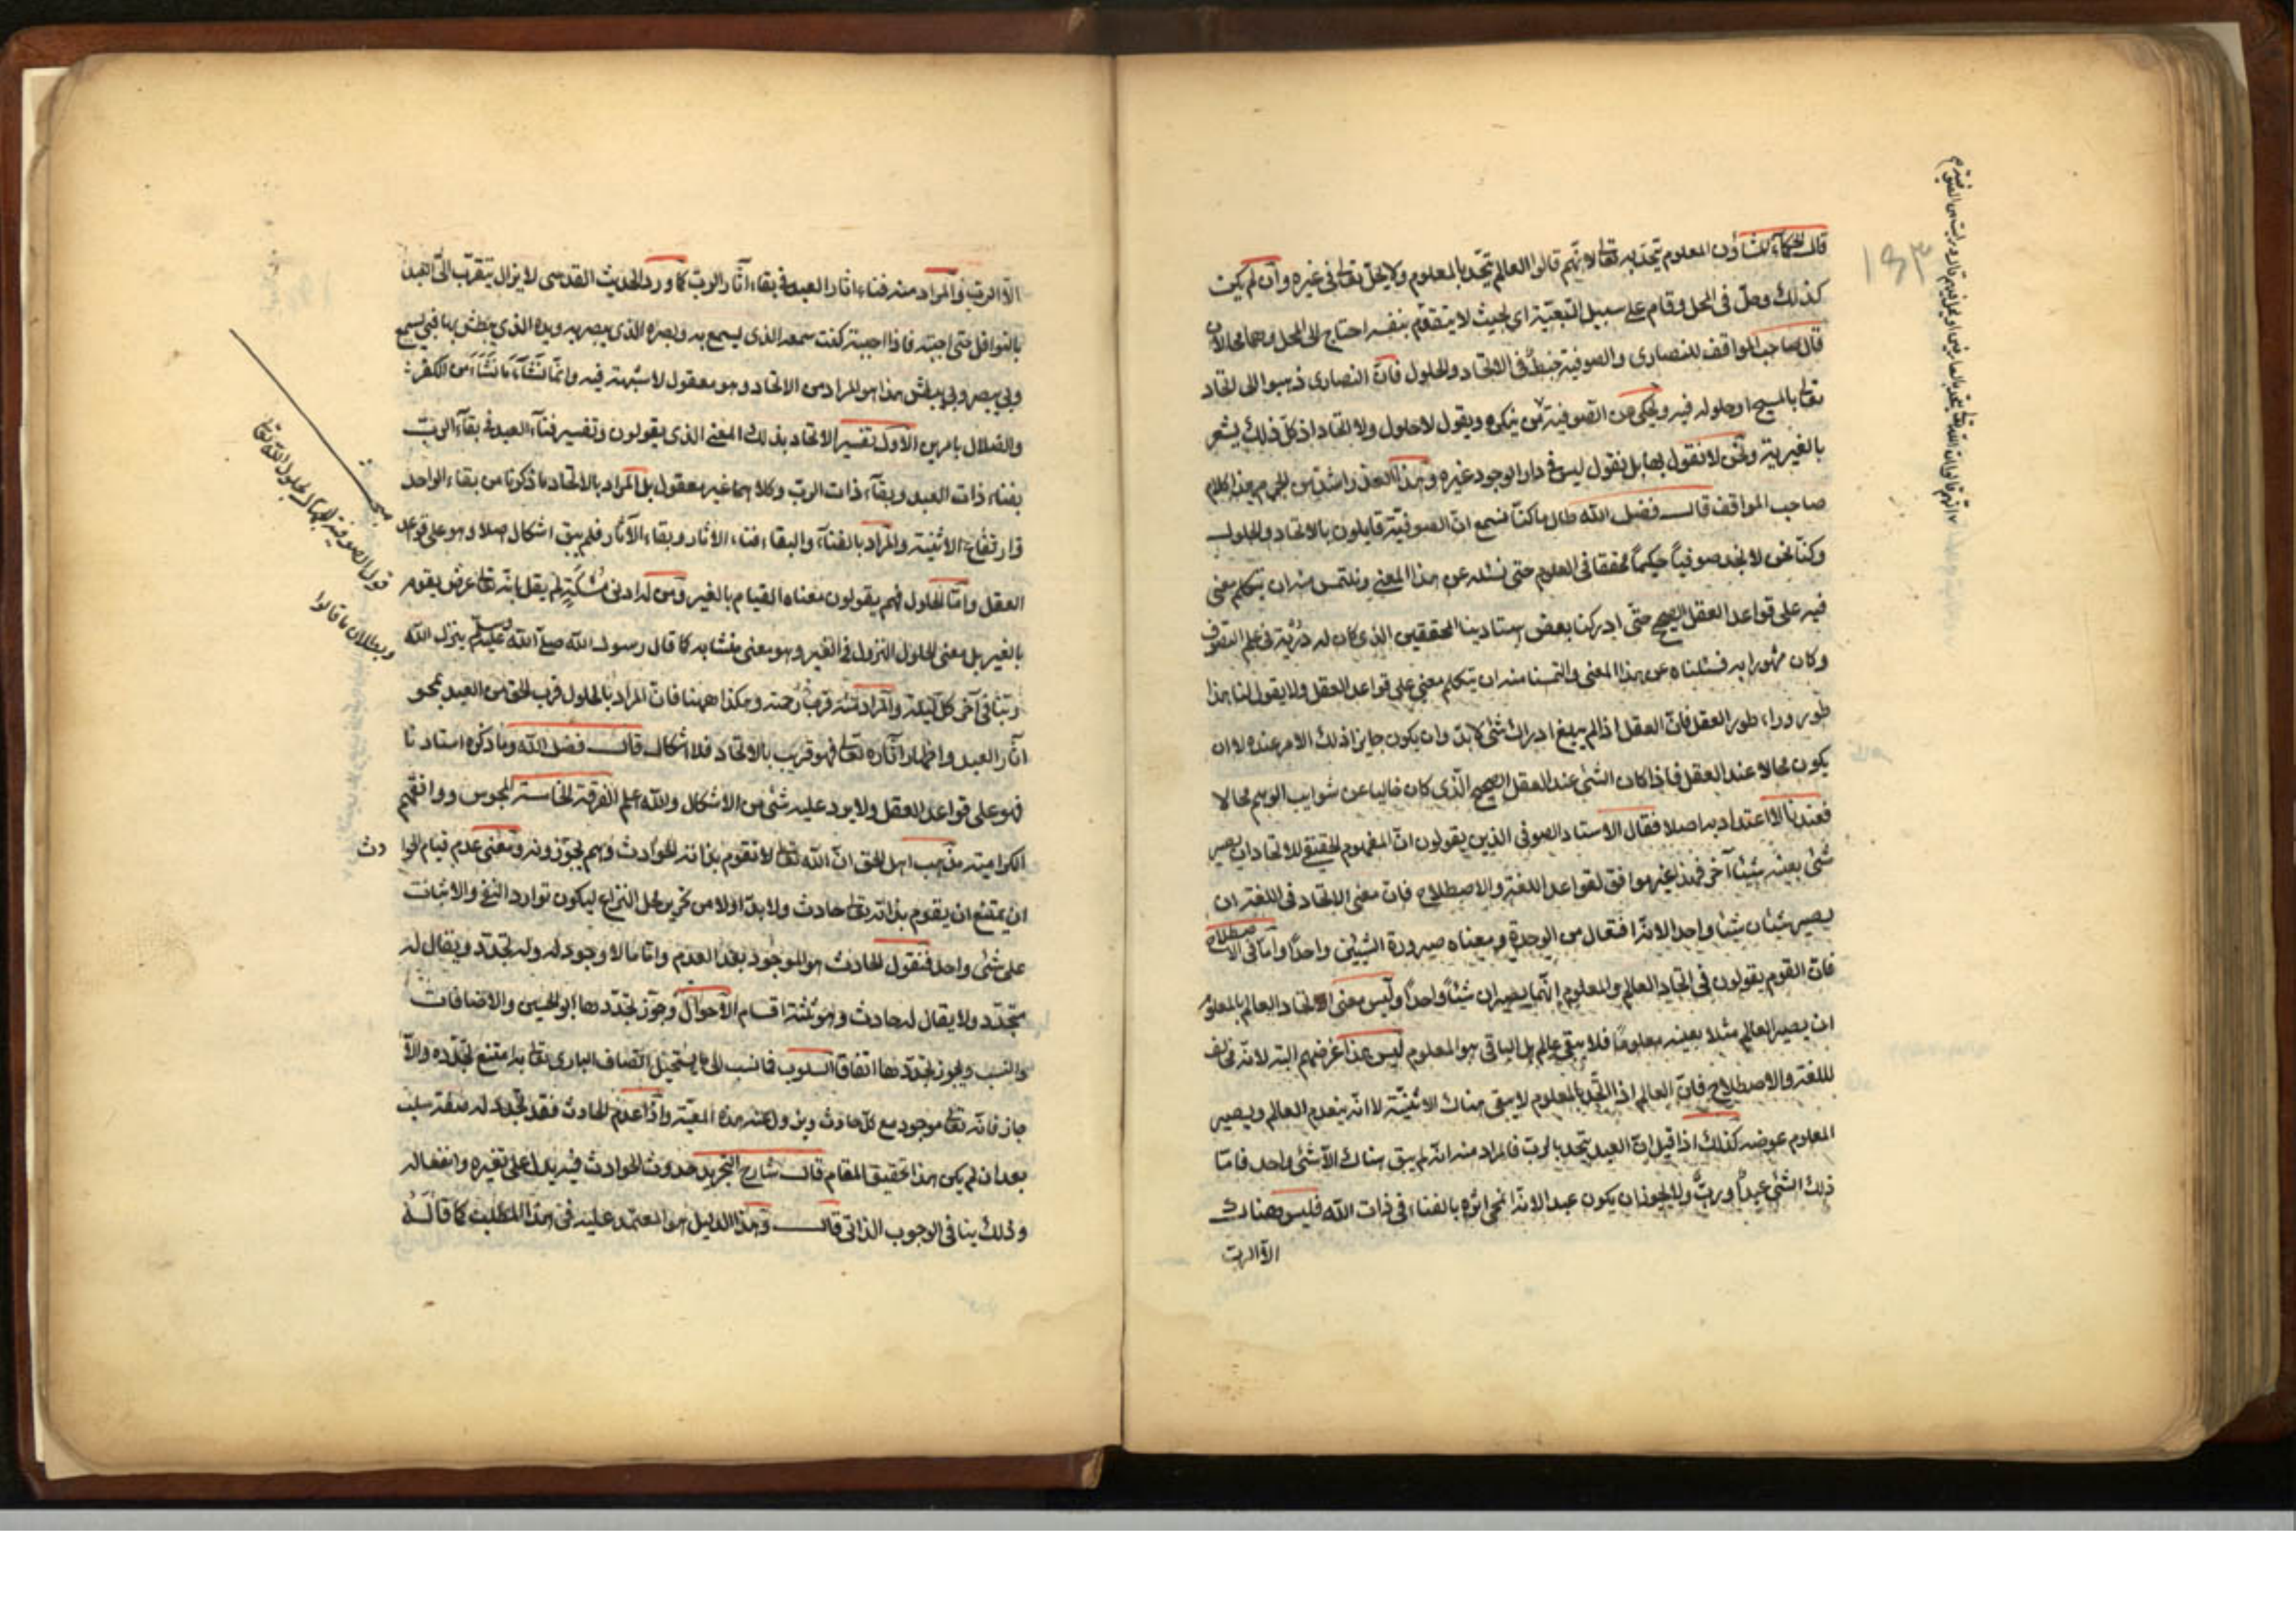 قال الحكماء المشاؤن المعلوم يتحد به تعالى لانهم قالوا العالم يتحد بالمعلوم ولا يحل تعالى في غيره وان لم يكن
كذلك وحل في المحل وقام على سبيل التبعية اى بحيث لا يتقوم بنفسه احتاج الى المحل وهما محالان
قال صاحب المواقف للنصارى والصوفية خبط في الاتحاد والحلول فان النصارى ذهبوا الى اتحاد
تعالى بالمسيح او حلوله فيه ويحكى من الصوفية من ينكره ويقول لا حلول ولا اتحاد اذ كل ذلك يشعر
بالغيرية ونحن لا نقول بها بل نقول ليس في دار الوجود غيره وهذا العذر اشد من الجرم هذا كلام
صاحب المواقف قال فضل الله طال ما كنا نسمع ان الصوفية قايلون بالاتحاد والحلول
وكنا نحن لا نجد صوفيا حكيما محققا في العلوم حتى نسئله عن هذا المعنى ونلتمس منه ان يتكلم معنى
فيه على قواعد العقل الصحيح حتى ادركنا بعض استادينا المحققين الذى كان له دربة في علم التصوف
وكان مشهورا به فسئلناه عن هذا المعنى والتمسنا منه ان يتكلم معنى على قواعد العقل ولا يقول لنا هذا
طور وراء طور العقل فان العقل اذا لم يبلغ ادراك شئ لا بد وان يكون جايزا ذلك الامر عنده لا ان
يكون محالا عند العقل فاذا كان الشئ عند العقل الصحيح الذى كان خاليا عن شوايب الوهم محالا
فعندنا لا اعتداد به اصلا فقال الاستاد الصوفى الذين يقولون ان المفهوم الحقيقى للاتحاد ان يصير
شئ بعينه شيئا آخر فهذا غير موافق لقواعد اللغة والاصطلاح فان معنى الاتحاد في اللغة ان
يصير شيئان شيئا واحدا لانه افتعال من الوحدة ومعناه صيرورة الشيئين واحدا واما في الاصطلاح
فان القوم يقولون في اتحاد العالم والمعلوم انهما يصيران شيئا واحدا وليس معنى الاتحاد العالم بالمعلوم
ان يصير العالم مثلا بعينه معلوما فلا يبقى عالم بل الباقى هو المعلوم ليس هذا غرضهم البتة لانه مخالف
للغة والاصطلاح فان العالم اذا اتحد بالمعلوم لا يبقى هناك الاثنينة لا انه ينعدم العالم ويصير
المعلوم عوضه كذلك اذا قيل ان العبد يتحد بالرب فالمراد منه انه لم يبق هناك الا شئ واحد فاما
ذلك الشئ عبد او رب ولا يجوز ان يكون عبدا لانه انمحى اثره بالفناء في ذات الله فليس هناك
الا الرب
الا الرب والمراد منه فناء اثار العبد في بقاء آثار الرب كما ورد الحديث القدسى لا يزال يتقرب الى العبد
بالنوافل حتى احبته فاذا احببته كنت سمعه الذى يسمع به وبصره الذى يبصر به ويده الذى يبطش بها فبى يسمع
وبى يبصر وبى يبطش هذا هو المراد من الاتحاد وهو معقول لا شبهة فيه وانما نشأ ما نشأ من الكفر
والضلال بامرين الاول تفسير الاتحاد بذلك المعنى الذى يقولون وتفسير فناء العبد في بقاء الرب
بفناء ذات العبد وبقاء ذات الرب وكلاهما غير معقول بل المراد بالاتحاد ما ذكرنا من بقاء الواحد
وارتفاع الاثنينة والمراد بالفناء والبقاء فناء الاثار وبقاء الآثار فلم يبق اشكال اصلا وهو على قواعد
العقل واما الحلول فهم يقولون معناه القيام بالغير ومن له ادنى مسكة لم يقل بانه تعالى عرض يقوم
بالغير بل معنى الحلول النزول في الغير وهو معنى متشابه كما قال رسول الله صلى الله عليه وسلم ينزل الله
ربنا في آخر كل ليلة والمراد منه قرب رحمته وهكذا ههنا فان المراد بالحلول قرب الحق من العبد بمحو
آثار العبد واظهار آثاره تعالى فهو قريب بالاتحاد فلا اشكال قال فضل الله وما ذكره استادنا
فهو على قواعد العقل ولا يرد عليه شئ من الاشكال والله اعلم الفرقة الخامسة المجوس ووافقهم
الكرامية مذهب اهل الحق ان الله تعالى لا تقوم بذاته الحوادث وهم يجوزونه ومعنى عدم قيام الحوادث
ان يمتنع ان يقوم بذاته تعالى حادث ولا بد اولا من تحرير محل النزاع ليكون توارد النفى والاثبات
على شئ واحد فنقول الحادث هو الموجود بعد العدم واما ما لا وجود له وله تجدد ويقال له
متجدد ولا يقال له حادث وهو ثلثة اقسام الاحوال وجوز تجددها ابو الحسين والاضافات
والنسب ويجوز تجددها اتفاقا السلوب فما نسب الى ما يستحيل اتصاف البارى تعالى به امتنع تجدده والا
جاز فانه تعالى موجود مع كل حادث ويزول عنه هذه المعية واذا عدم الحادث فقد تجدد له صفة سلب
بعد ان لم يكن هذا تحقيق المقام قال شارح التجريد حدوث الحوادث فيه يدل على تغيره وانفعاله
وذلك ينافى الوجوب الذاتى قال وهذا الدليل هو المعتمد عليه في هذا المطلب كما قاله
مبحث
قول الصوفية الجهال بحلول الله تعالى
وبطلان ما قالوا
١٥٣